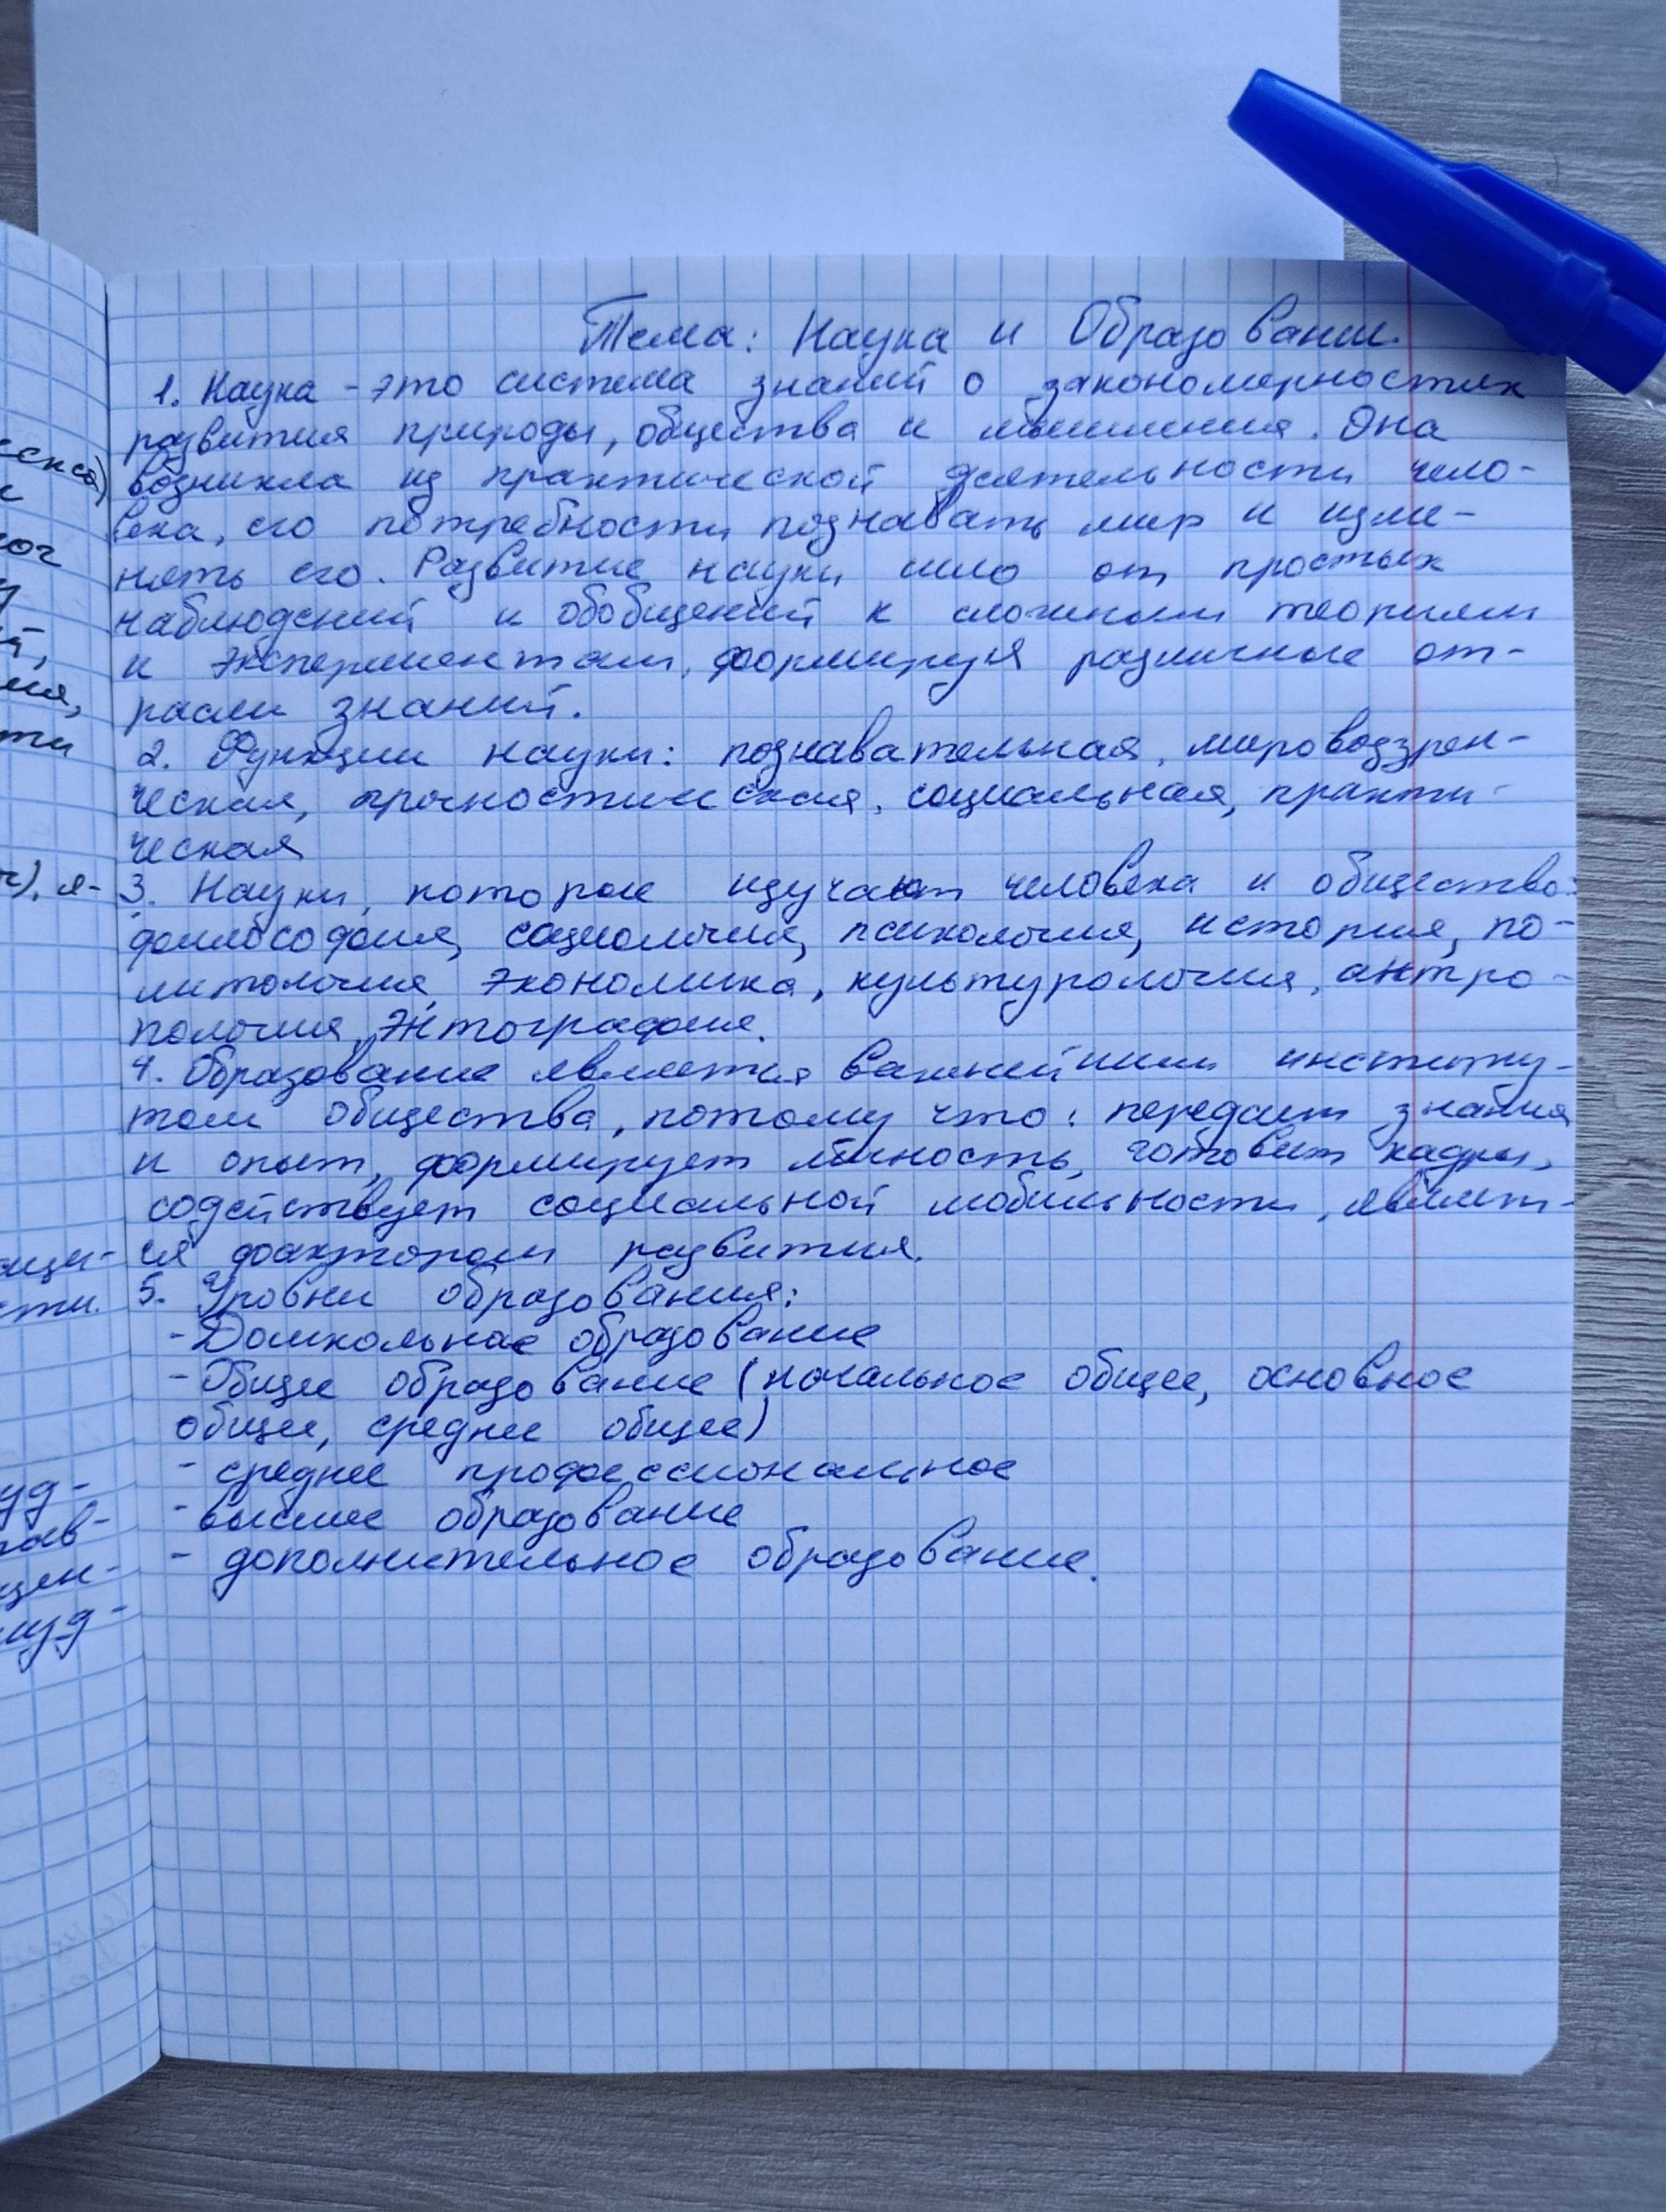 Тема: Наука и Образовании.
1. Наука - это система знаний о закономерностях
развития природы, общества и мышления. Она
возникла из практической деятельности чело-
века, его потребности познавать мир и изме-
нять его. Развитие науки шло от простых
наблюдений и обобщений к сложным теориям
и экспериментам, формируя различные от-
расли знаний.
2. Функции науки: познавательная, мировоззрен-
ческая, прогностическая, социальная, практи-
ческая
3. Науки, которые изучают человека и общество:
философия, социология, психология, история, по-
литология, экономика, культурология, антро-
пология, этнография.
4. Образование является важнейшим институ-
том общества, потому что: передает знания
и опыт, формирует личность, готовит кадры,
содействует социальной мобильности, являет-
ся фактором развития.
5. Уровни образования:
- Дошкольное образование
- Общее образование (начальное общее, основное
общее, среднее общее)
- среднее профессиональное
- высшее образование
- дополнительное образование.